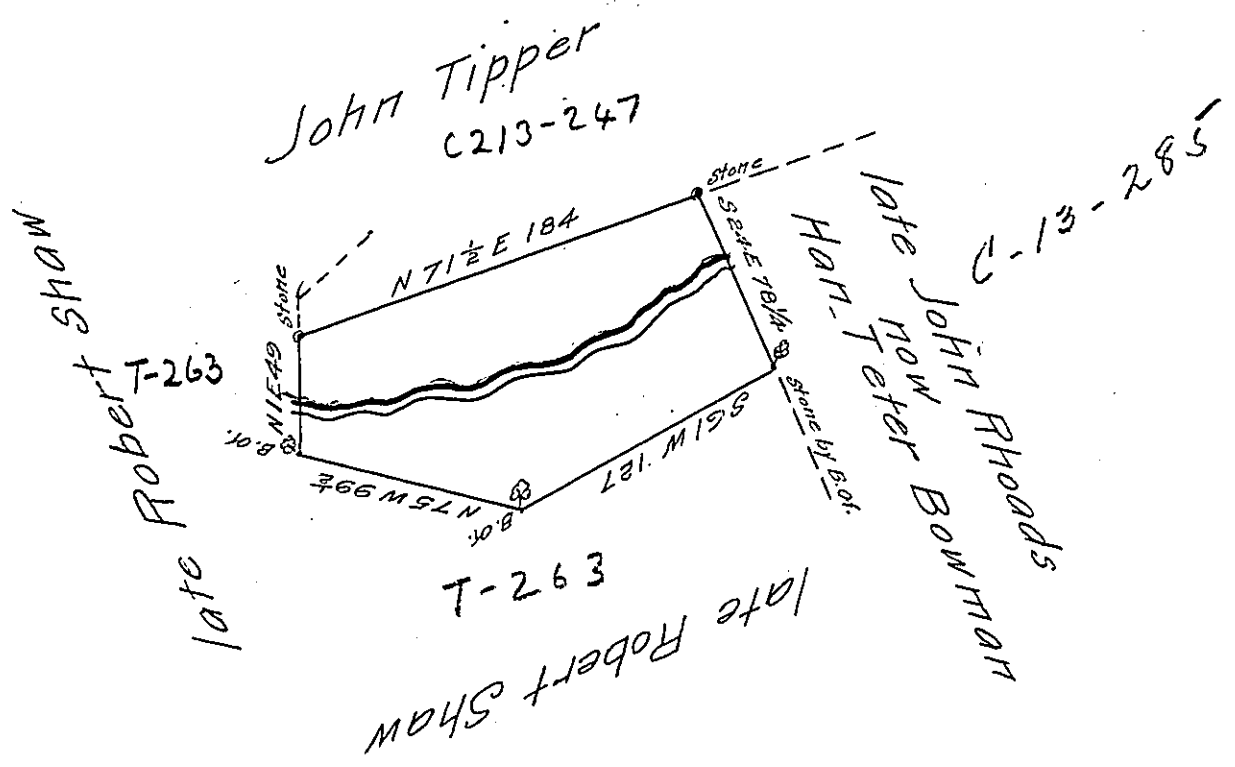 John Tipper
C213-247
late Robert Shaw
T-263
Stone
N 71½ E 184
Stone
S 24 E 78¼
late John Rhoads
now
Han-Teter Bowman
C-13-285
N1E49
B.Ot.
N 75 W 99½
B.Ot.
S61W 127
Stone by B.Ot.
T-263
late Robert Shaw